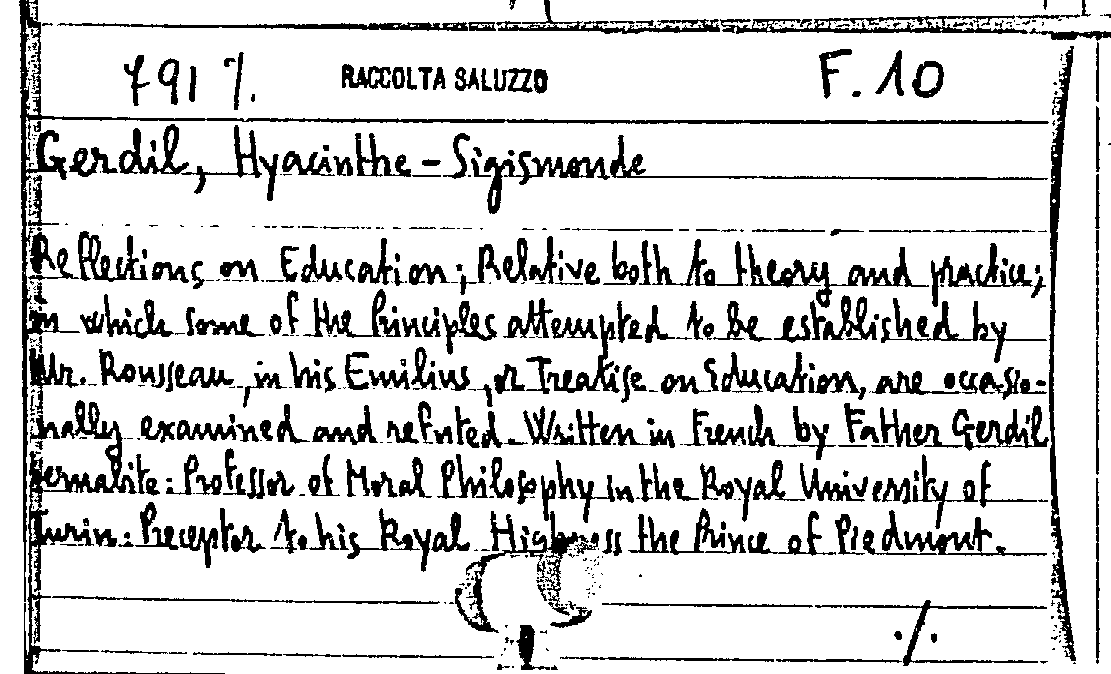 791 %. RACCOLTA SALUZZO F. 10
Gerdil, Hyacinthe-Sigismonde
Reflections on Education; Relative both to theory and practice;
in which some of the Principles attempted to be established by
Mr. Rousseau, in his Emilius, or Treatise on Education, are occasio-
nally examined and refuted. Written in French by Father Gerdil
Bernabite: Professor of Moral Philosophy in the Royal University of
Turin: Preceptor to his Royal Highness the Prince of Piedmont.
./.